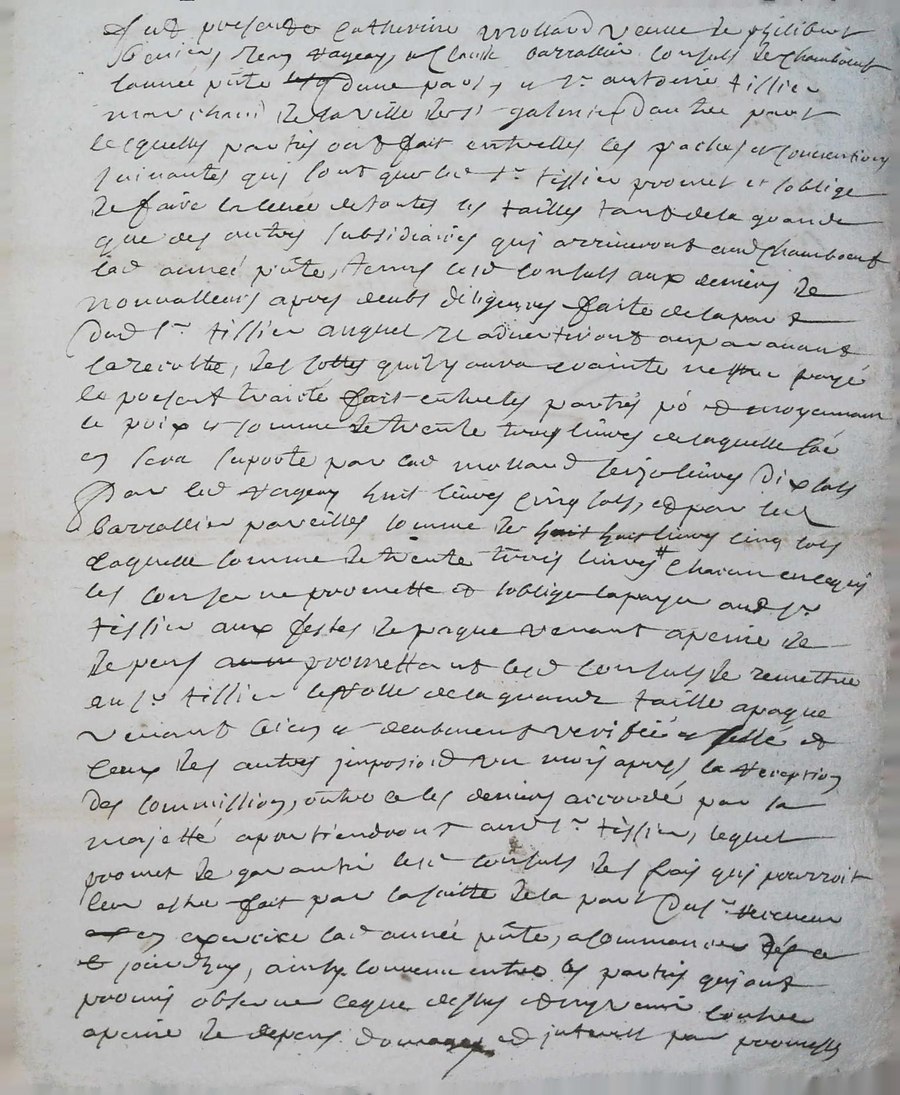 fut presente Catherine molland veuve de philibert
Jean vageay, et Claude barrallier consuls de Chambœuf
lannee pnte dune part, et sr antoine tissier
marchand de la ville de st galmier dautre part
lesquelles parties ont fait entrelles les paches et conventions
suivantes qui sont que led sr tissier promet et soblige
de faire la levee de toutes les tailles tant de la grande
que des autres subsidiaires qui arriveront aud Chambœuf
lad année pnte, tenus lesd consuls aux deniers de
nonvalleurs apres deubs diligences faite de la part
dud sr tissier auquel ils advertiront auparavant
la recolte, des cottes quil y aura crainte nestre payé
le present traité fait entre les parties et moyennant
le prix et somme de trente trois livres de laquelle
en sera suporté par lad molland seize livres dix sols
par led vageay huit livres cinq sols, et par led
barrallier pareilles somme de huit livres cinq sols
laquelle somme de trente trois livres chacun en
les concerne promette et soblige la payer aud sr
tissier aux festes de paque venant a peine de
depens promettant lesd consuls de remettre
au sr tissier le rolle de la grande taille a paque
venant bien et deubment verifié et sellé et
ceux des autres imposions un mois apres la reception
des commission, outre ce les deniers accordé par sa
majesté apartiendront aud sr tissier, lequel
promet de garantir lesd consuls des frais qui pourroit
leur estre fait par la suitte de la part du sr receveur
en exercice lad année pnte, a commancer dés ce
jourdhuy, ainsy convenu entre les parties qui ont
promis observer ce que dessus et ny venir contre
a peine de depens domages et interest par promesses